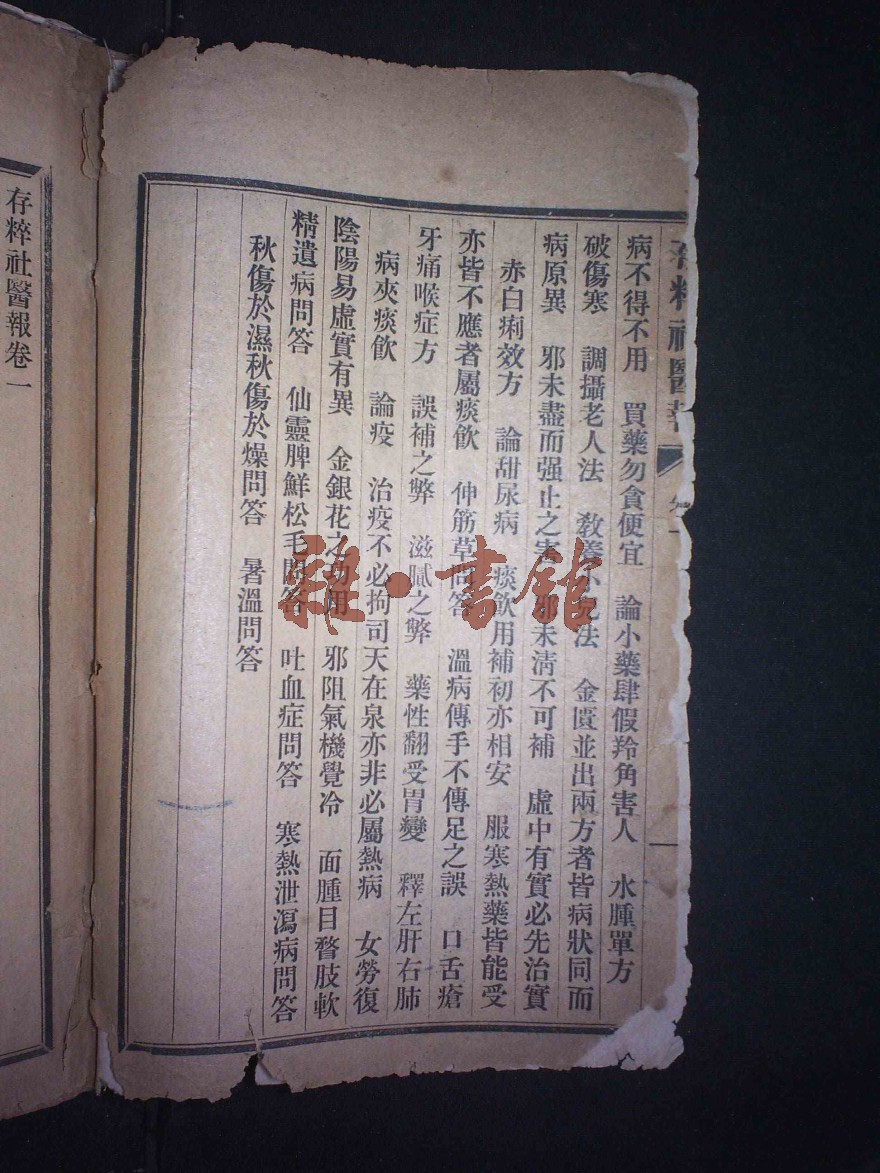 存粹社醫報 卷一
病不得不用　買藥勿貪便宜　論小藥肆假羚角害人　水腫單方
破傷寒　調攝老人法　教養小兒法　金匱並出兩方者皆病狀同而
病原異　邪未盡而强止之害　邪未清不可補　虛中有實必先治實
赤白痢效方　論甜尿病　痰飲用補初亦相安　服寒熱藥皆能受
亦皆不應者屬痰飲　伸筋草問答　溫病傳手不傳足之誤　口舌瘡
牙痛喉症方　誤補之弊　滋膩之弊　藥性翻受胃變　釋左肝右肺
病夾痰飲　論疫　治疫不必拘司天在泉亦非必屬熱病　女勞復
陰陽易虛實有異　金銀花之功用　邪阻氣機覺冷　面腫目瞀肢軟
精遺病問答　仙靈脾鮮松毛問答　吐血症問答　寒熱泄瀉病問答
秋傷於濕秋傷於燥問答　暑溫問答
存粹社醫報卷一
雜·書館